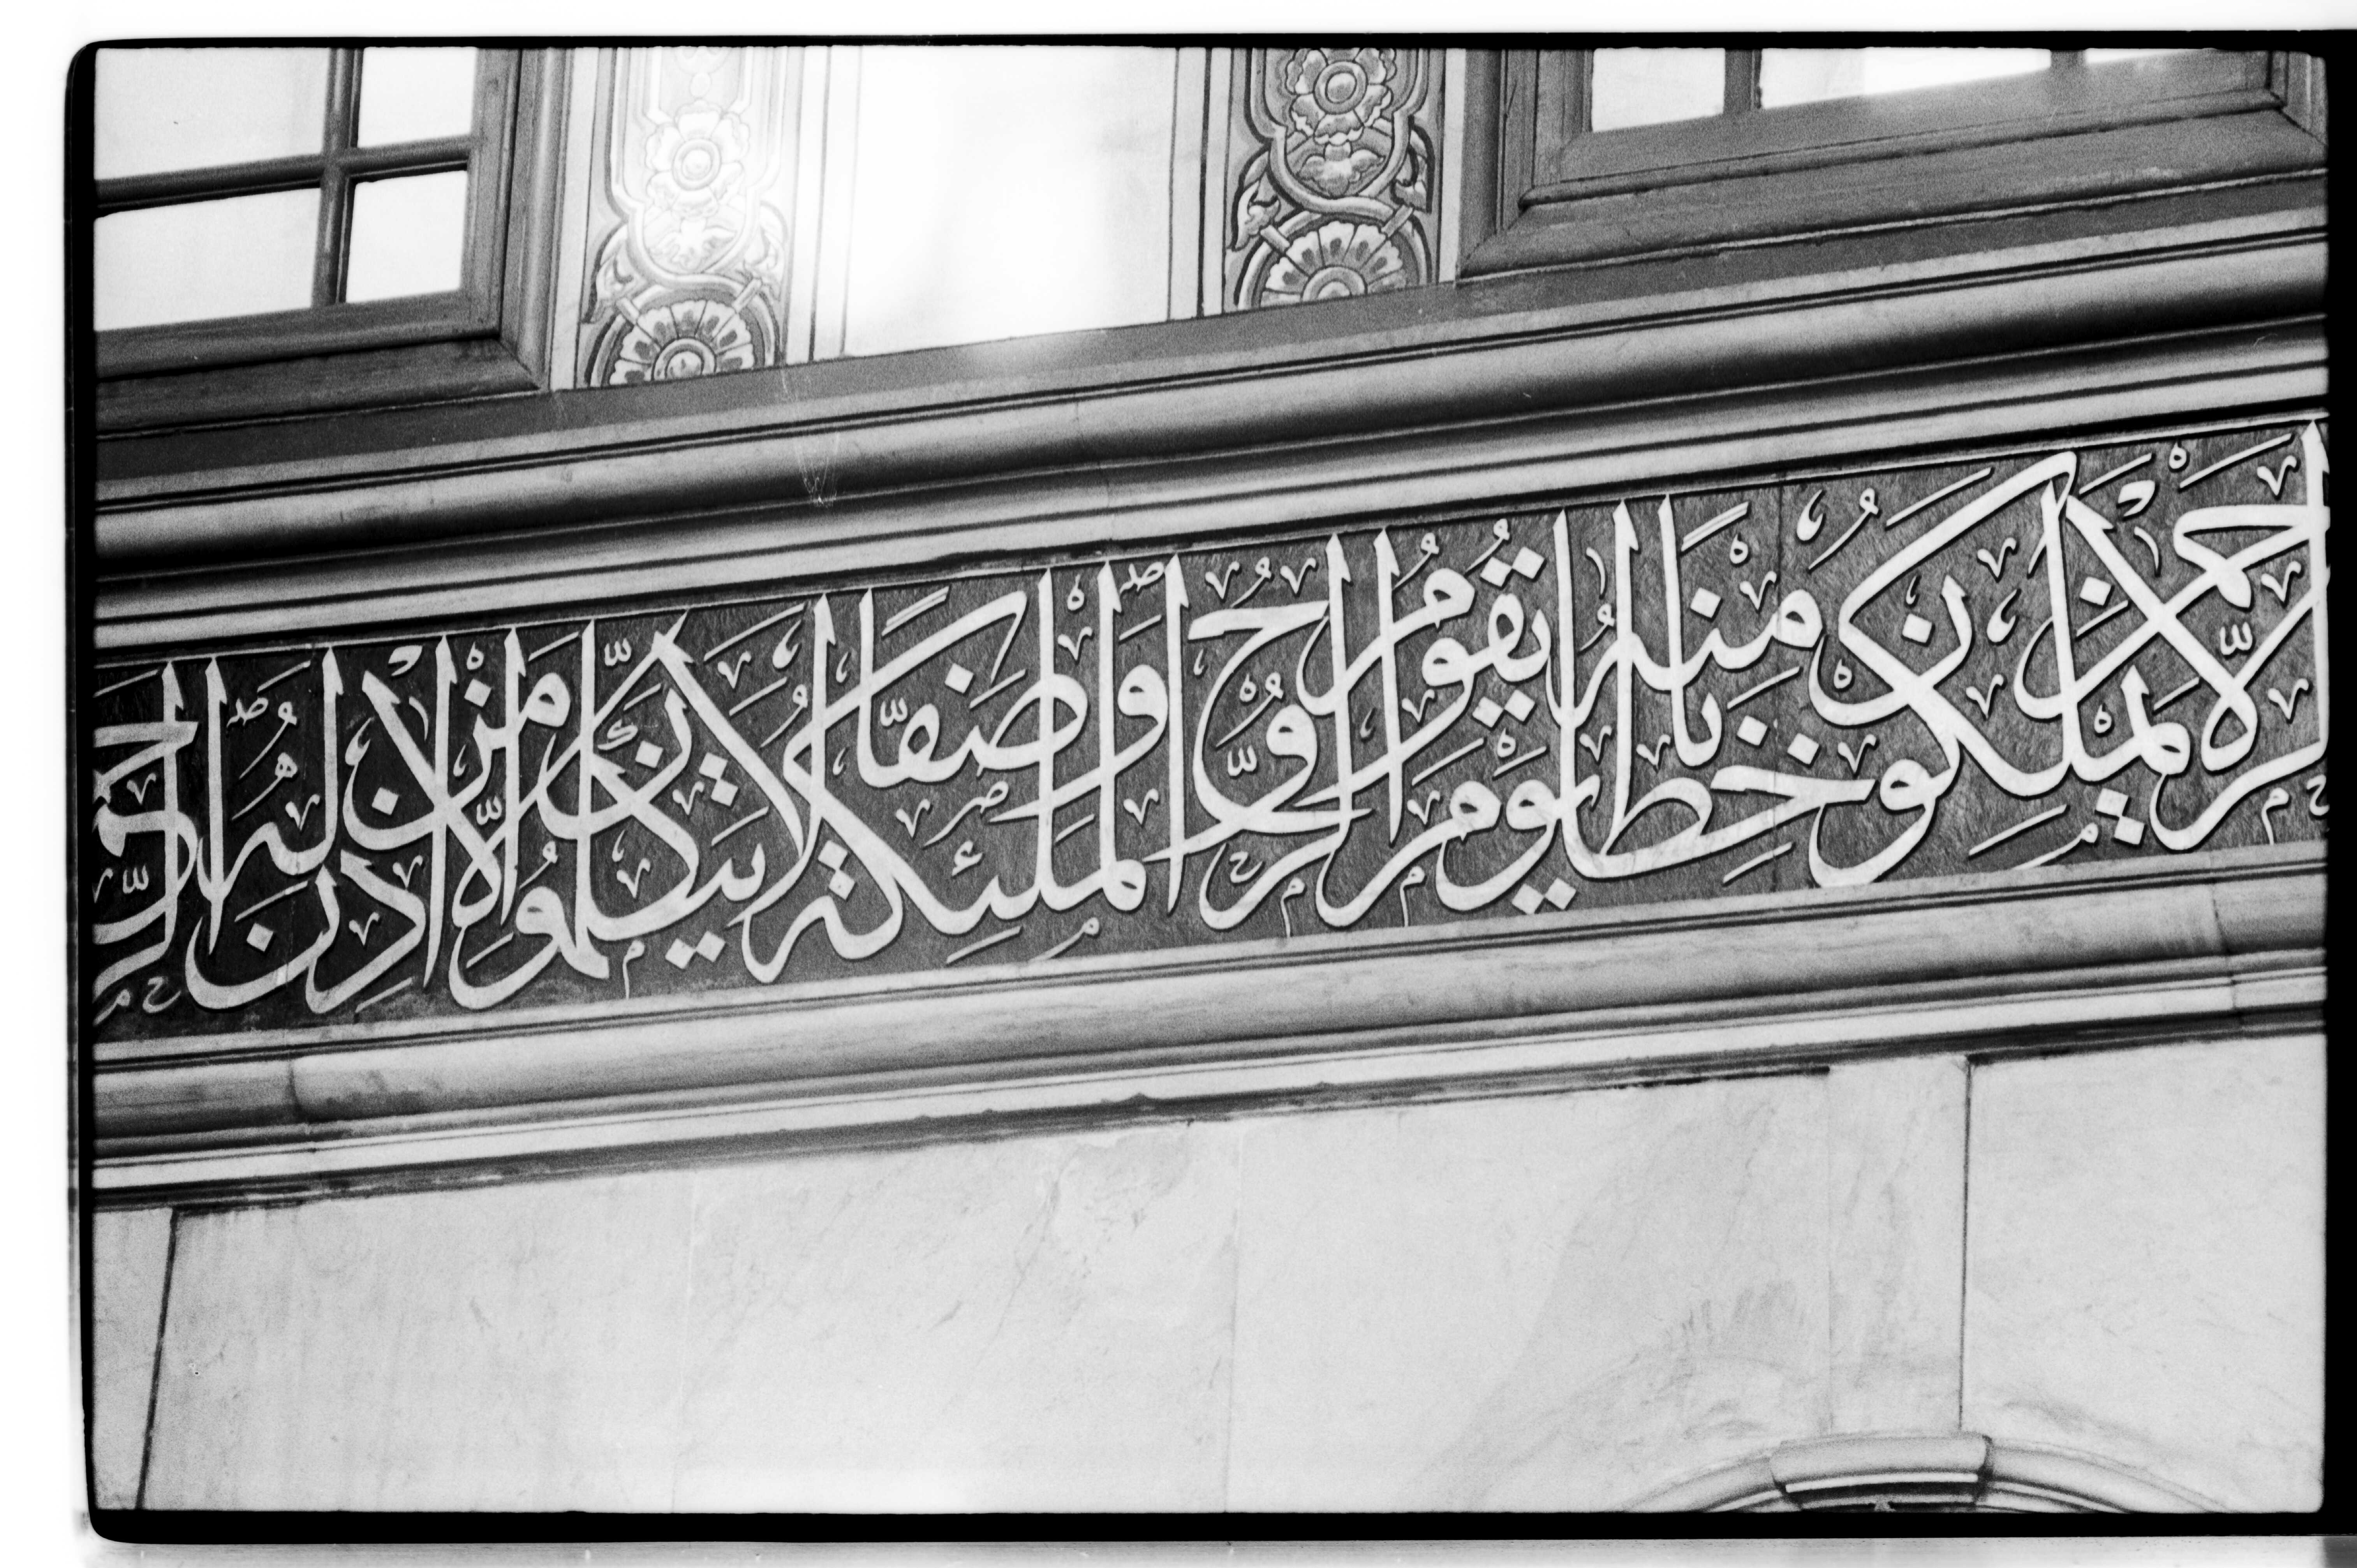 الرحمن لا يملكون منه خطابا يوم يقوم الروح والملئكة صفا لا يتكلمون الا من اذن له الرحمن